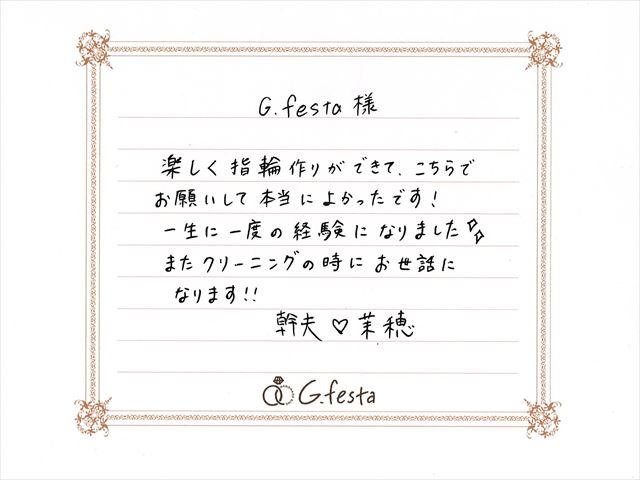 G.festa 様
楽しく指輪作りができて、こちらで
お願いして本当によかったです!
一生に一度の経験になりました✨
またクリーニングの時にお世話に
なります!!
幹夫♡茉穂
G.festa